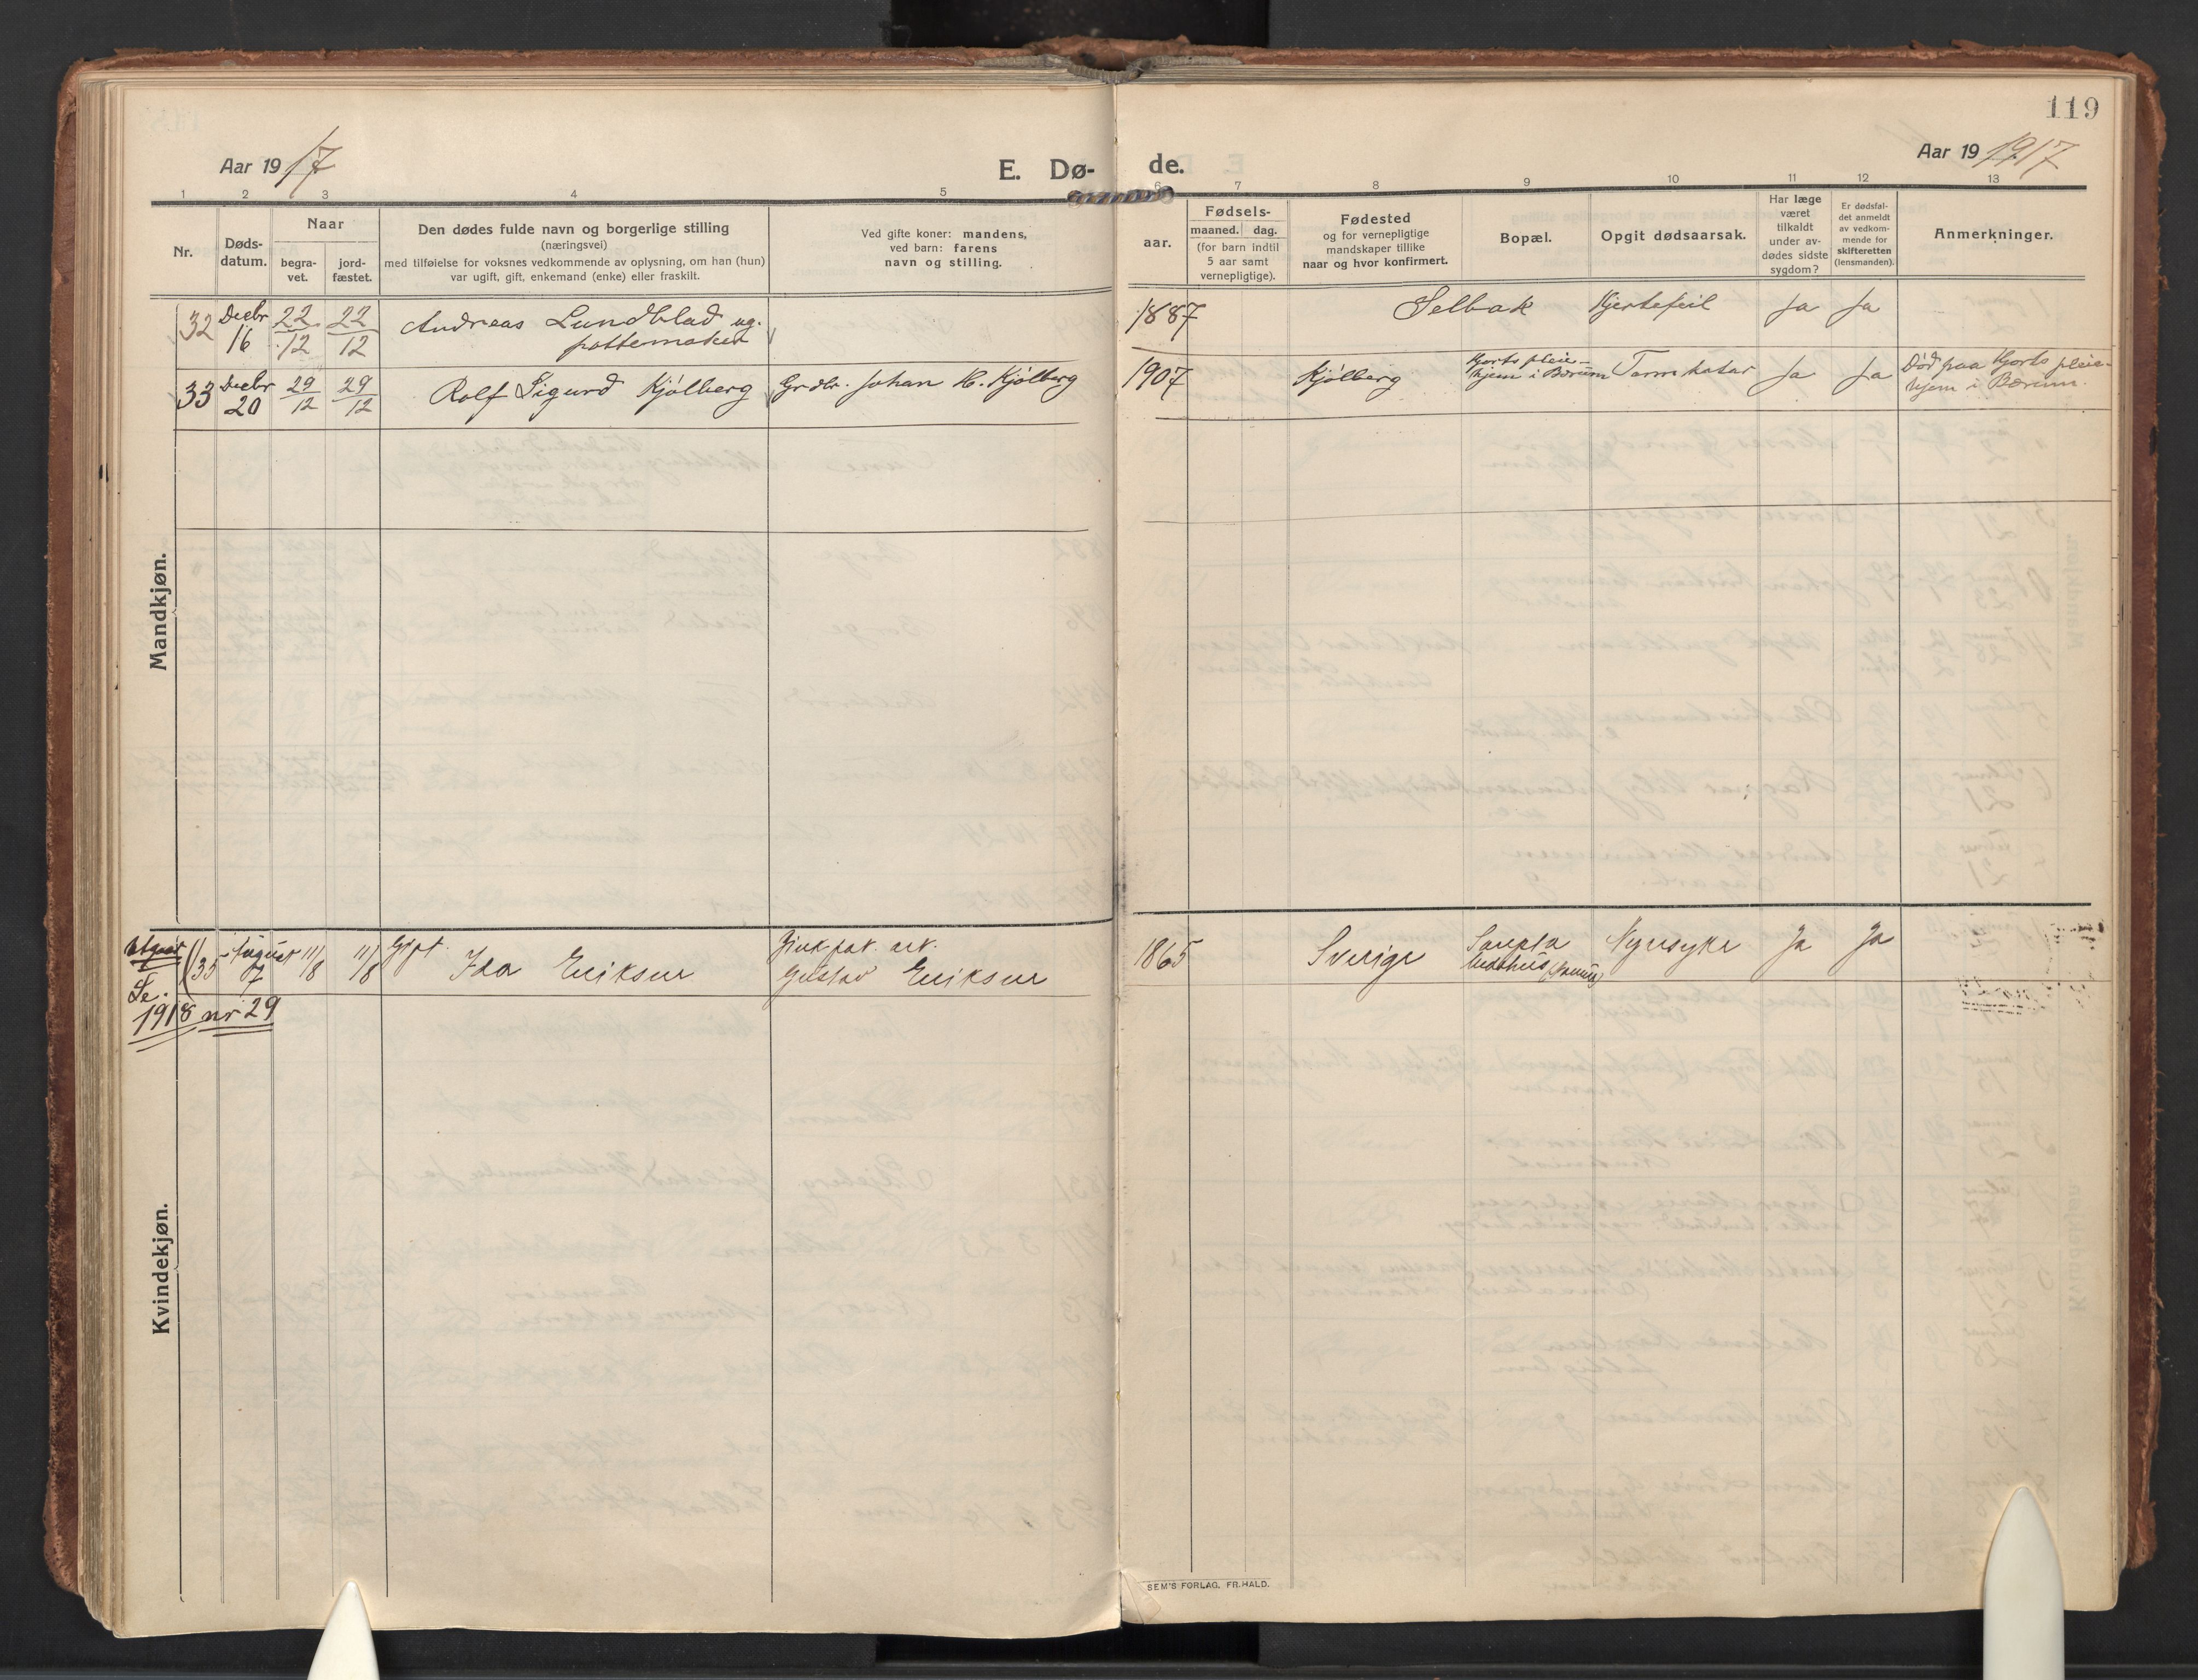 119
Aar 1917
E. Dø-
de.
Aar 19 1917
1 2 3 4 5 6 7 8 9 10 11 12 13
Nr.
Døds-
datum.
Naar
begra-
vet.
jord-
fæstet.
Den dødes fulde navn og borgerlige stilling
(næringsvei)
med tilføielse for voksnes vedkommende av oplysning, om han (hun)
var ugift, gift, enkemand (enke) eller fraskilt.
Ved gifte koner: mandens,
ved barn: farens
navn og stilling.
aar.
Fødsels-
maaned. dag.
(for barn indtil
5 aar samt
vernepligtige).
Fødested
og for vernepligtige
mandskaper tillike
naar og hvor konfirmert.
Bopæl.
Opgit dødsaarsak.
Har læge
været
tilkaldt
under av-
dødes sidste
sygdom?
Er dødsfal-
det anmeldt
av vedkom-
mende for
skifteretten
(lensmanden).
Anmerkninger.
Mandkjøn.
32 Decbr 16 22/12 22/12 Andreas Lundblad ug.
pottemaker
1887 Selbak Hjertefeil Ja Ja
33 Decbr 20 29/12 29/12 Rolf Sigurd Kjølberg Grdbr. Johan H. Kjølberg
1907 Kjølberg Hjorts pleie-
hjem i Bærum Tarmkatar Ja Ja Død paa Hjorts pleie-
hjem i Bærum.
Kvindekjøn.
utgaar
(35 August 7 11/8 11/8 Gift Ida Eriksen
Gustav Eriksen
1865 Sverige Nyresyke Ja Ja
Se.
1918 nr 29
SEM'S FORLAG, FR. HALD.